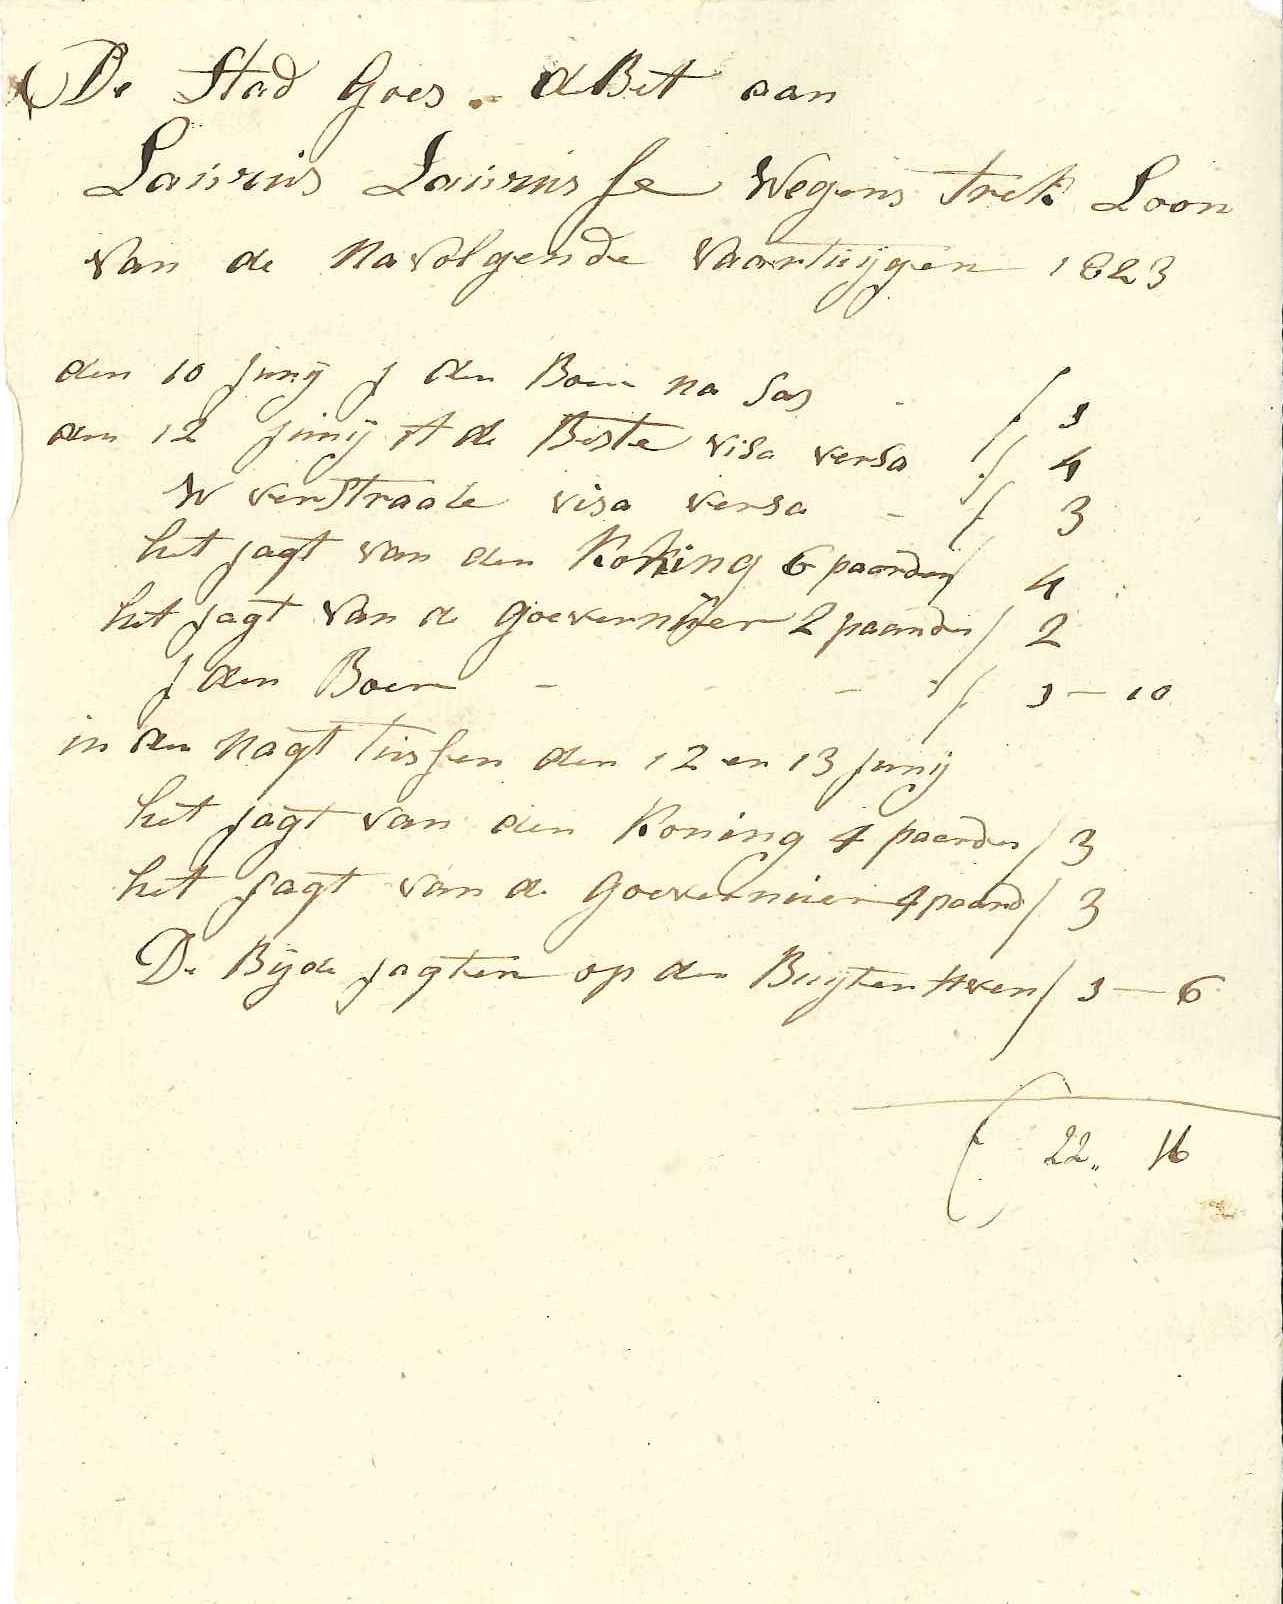 De Stad Goes dBet aan
Laurus Laurusse Wegens Trek Loon
van de navolgende vaartuijgen 1823
den 10 junij j den Boer na Sas - f 1
den 12 junij A de Beste visa versa f 4
W verstraate visa versa - f 3
het jagt van den Koning 6 paarden f 4
het jagt van de goevernuer 2 paarden f 2
j den Boer - - - f 1 - 10
in den nagt tussen den 12 en 13 junij
het jagt van den Koning 4 paarden f 3
het jagt van de goevernuer 4 paard f 3
De Bijde jagten op den Buijten Haven f 1 - 6
f 22 " 16